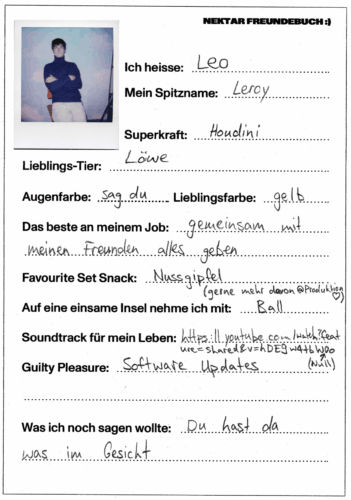 NEKTAR FREUNDEBUCH :)
Ich heisse: Leo
Mein Spitzname: Leroy
Superkraft: Houdini
Lieblings-Tier: Löwe
Augenfarbe: sag du Lieblingsfarbe: gelb
Das beste an meinem Job: gemeinsam mit
meinen Freunden alles geben
Favourite Set Snack: Nussgipfel
(gerne mehr davon @Produktion ♡)
Auf eine einsame Insel nehme ich mit: Ball
Soundtrack für mein Leben: https://youtube.com/watch?feat
ure=shared&v=
(Null)
Guilty Pleasure: Software Updates
Was ich noch sagen wollte: Du hast da
was im Gesicht